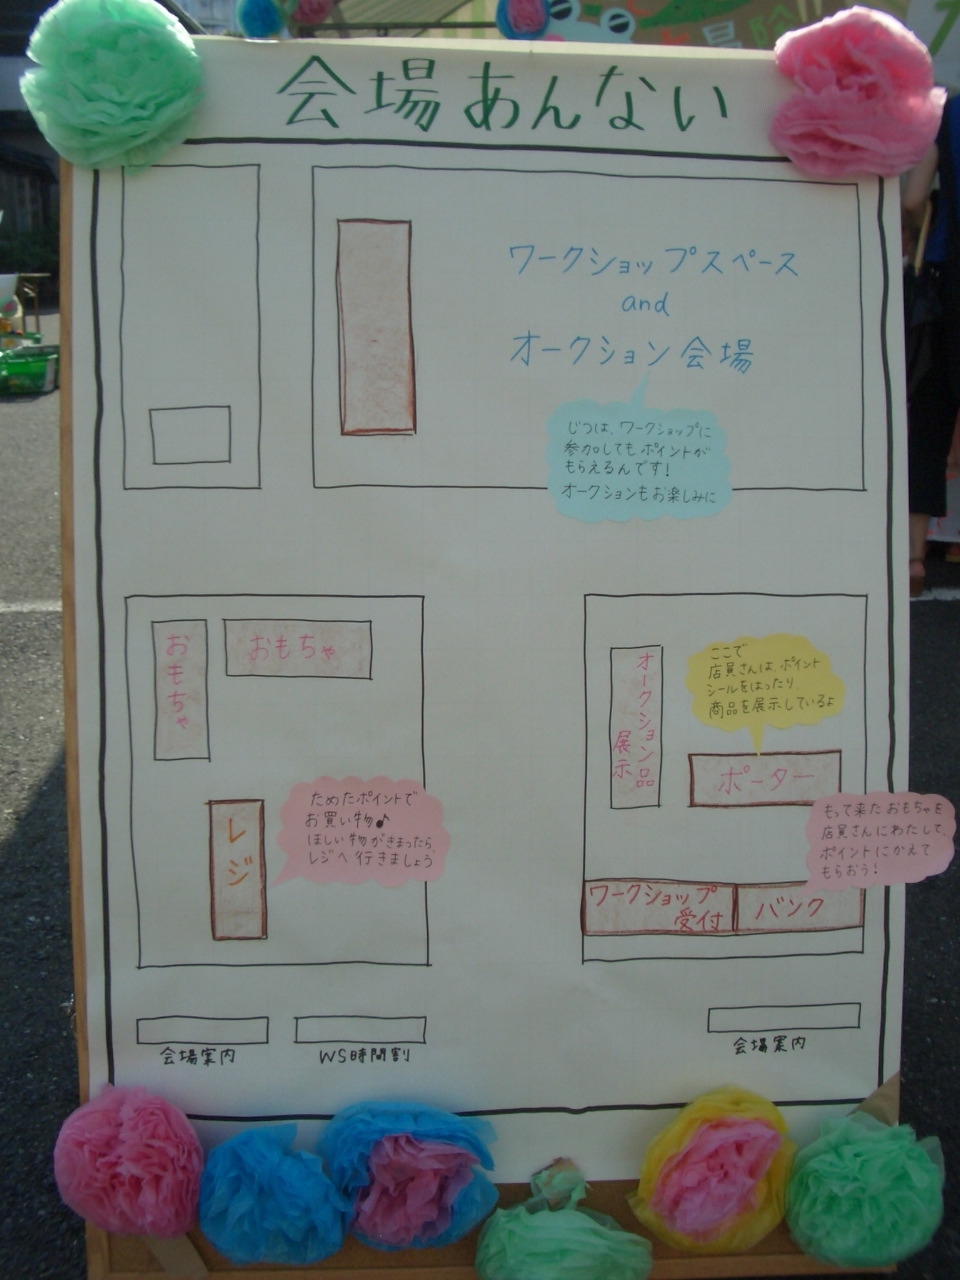 会場あんない
ワークショップスペース
and
オークション会場
じつは、ワークショップに
参加してもポイントが
もらえるんです!
オークションもお楽しみに
おもちゃ
おもちゃ
レジ
ためたポイントで
お買い物♪
ほしい物がきまったら、
レジへ行きましょう
オークション品
展示
ここで
店員さんは、ポイント
シールをはったり、
商品を展示しているよ
ポーター
もって来たおもちゃを
店員さんにわたして、
ポイントにかえて
もらおう!
ワークショップ
受付
バンク
会場案内
WS時間割
会場案内